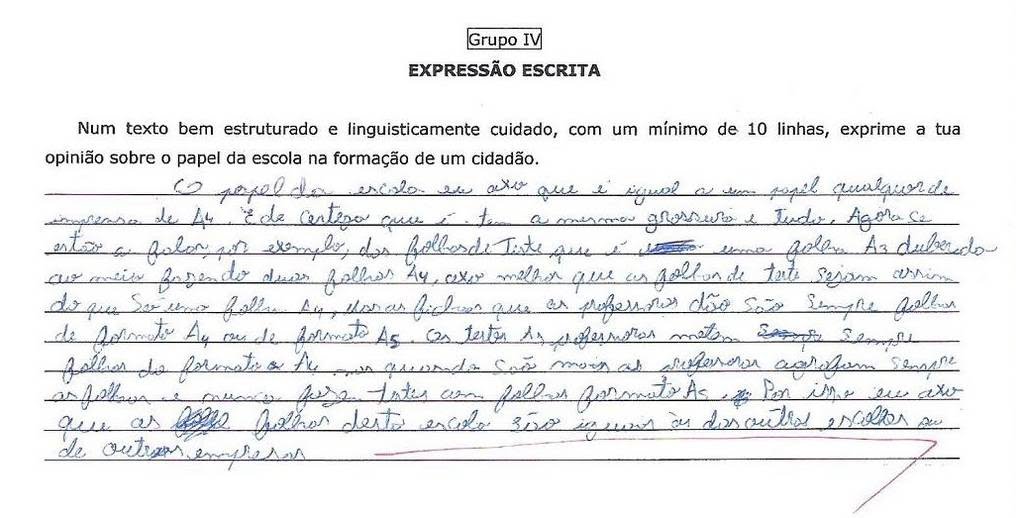 Grupo IV
EXPRESSÃO ESCRITA
Num texto bem estruturado e linguisticamente cuidado, com um mínimo de 10 linhas, exprime a tua
opinião sobre o papel da escola na formação de um cidadão.
O papel da escola eu axo que é igual a um papel qualquer de
imprensa de A4. É de certeza que é. tem a mesma grossura e tudo. Agora se
estão a falar, por exemplo, das folhas de Teste que é uma folha A3 dubrada
ao meio fazendo duas folhas A4, axo melhor que as folhas de teste sejam assim
do que só uma folha A4, mas as fichas que as professoras dão são sempre folhas
de formato A4 ou de formato A5. Os testes as professoras metem sempre
folhas do formato A4 quando são mais as professoras agrafam sempre
as folhas e nunca testes com folhas formato A5. Por isso eu axo
que as folhas desta escola são iguais às das outras escolas ou
de outras empresas